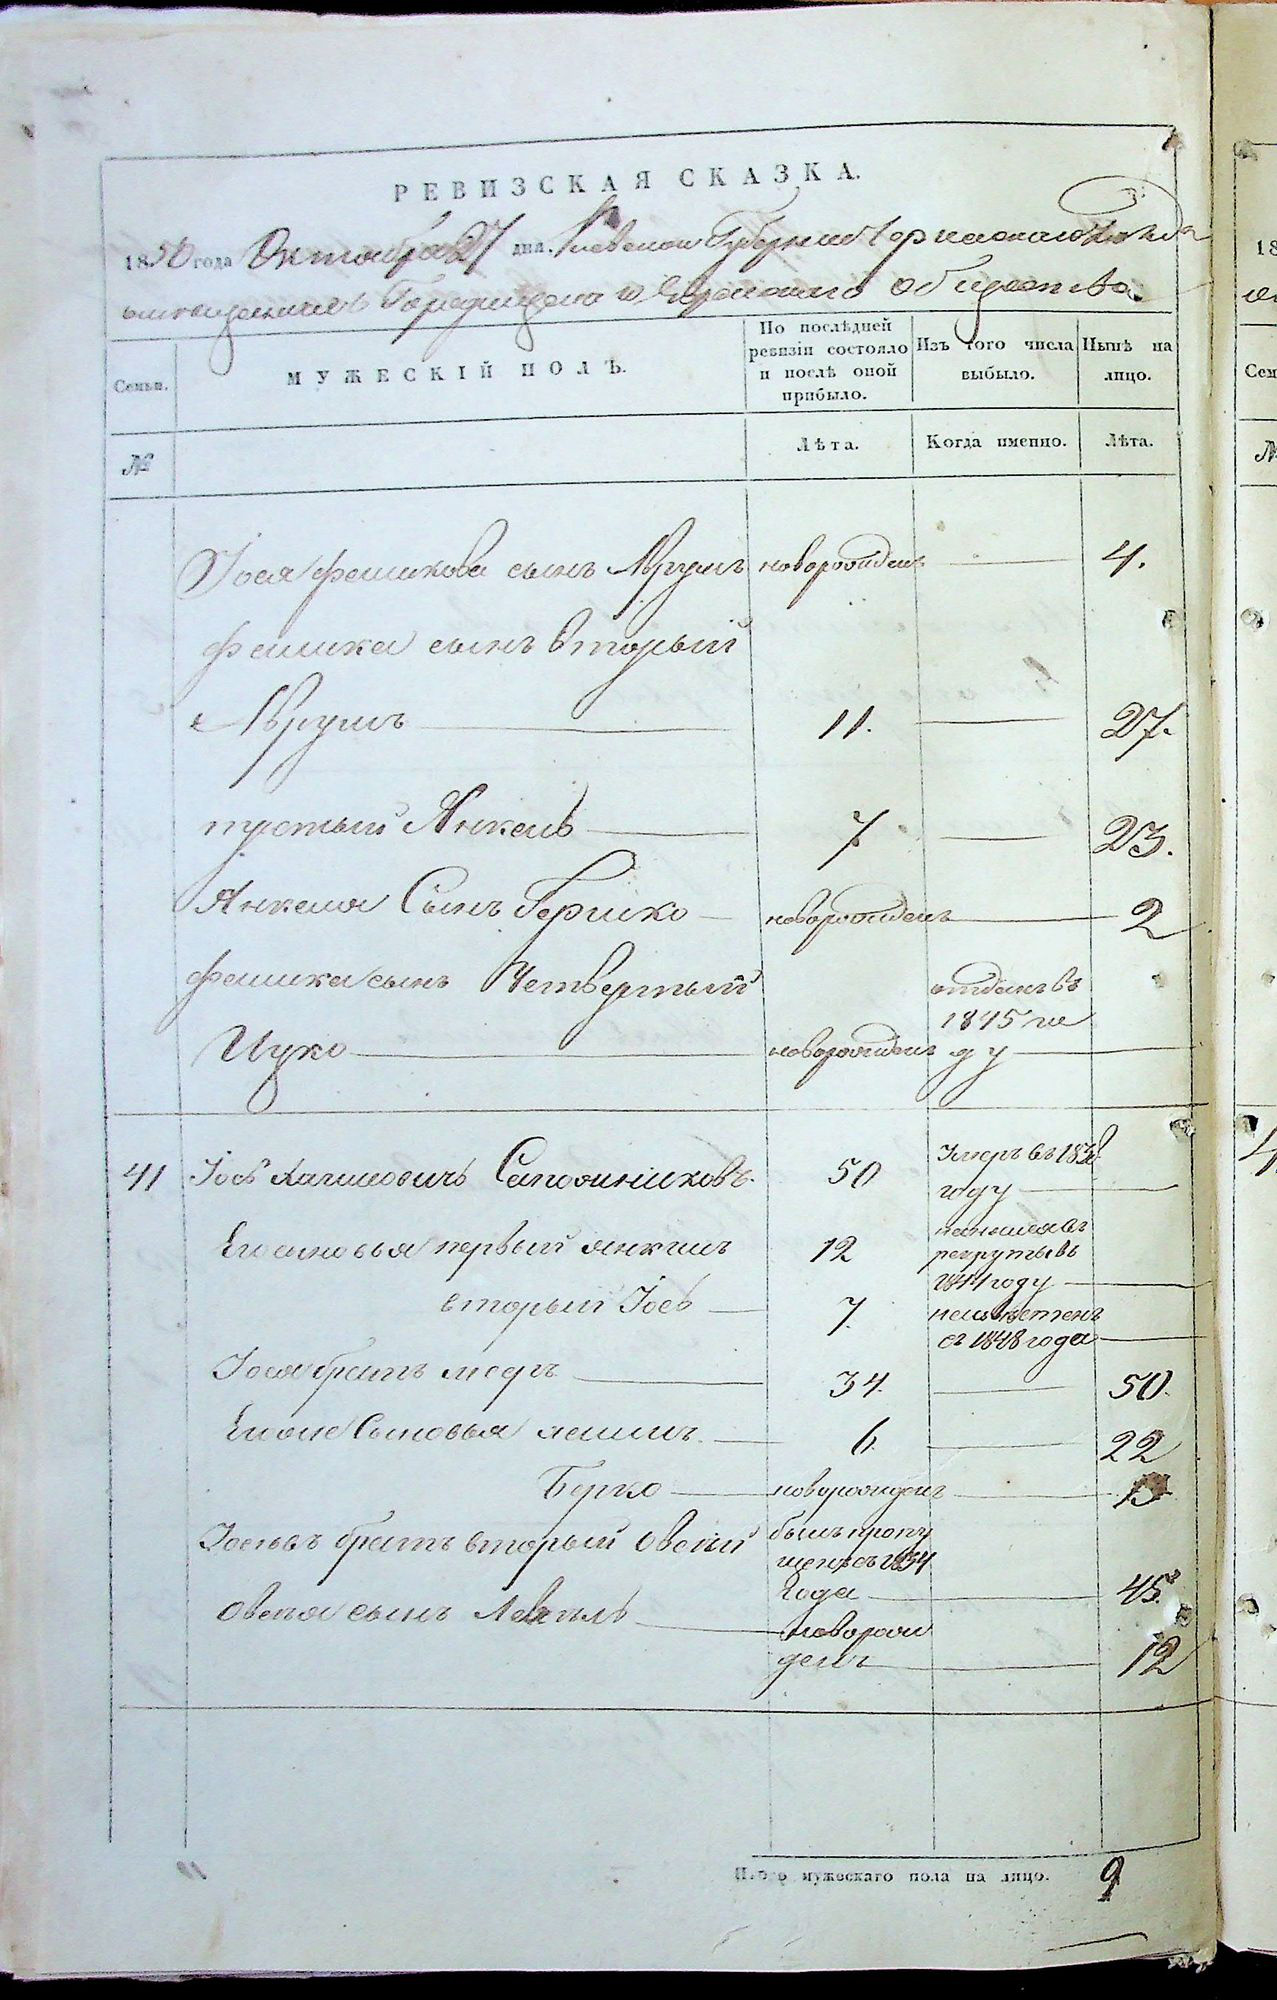 РЕВИЗСКАЯ СКАЗКА.
1850 года Октября 27 дня. Киевской Губернии Черкаскаго Уезда
мѣстечка Городища Еврейскаго общества
Семьи.
МУЖЕСКІЙ ПОЛЪ.
По послѣдней ревизіи состояло и послѣ оной прибыло.
Изъ того числа выбыло.
Нынѣ на лицо.
№
Лѣта.
Когда именно.
Лѣта.
Іося Фешикова сынъ Аврумъ новорожденъ 4.
Фешика сынъ вторый
Аврумъ 11. 27.
третьий Янкель 7. 23.
Янкеля Сынъ Гершко новорожденъ 2
Фешика сынъ Четвертый отданъ въ
1845 го
Ицко новорожденъ ду
41 Іось Хаимовичъ Сапожниковъ. 50 Умеръ въ 1838
году
Его сыновья первый Янкель 12
рекруты въ
1844 году
вторый Іось 7. неизвѣстенъ
съ 1848 года
Іося братъ меръ 34. 50.
Его же Сыновья 6. 22
Берко новорожденъ 13
Іосевъ братъ вторый Овсей былъ пропу
щенъ съ 1834
года 45.
Овсея сынъ Лейзель новорож
денъ 12
Итого мужескаго пола на лицо. 9